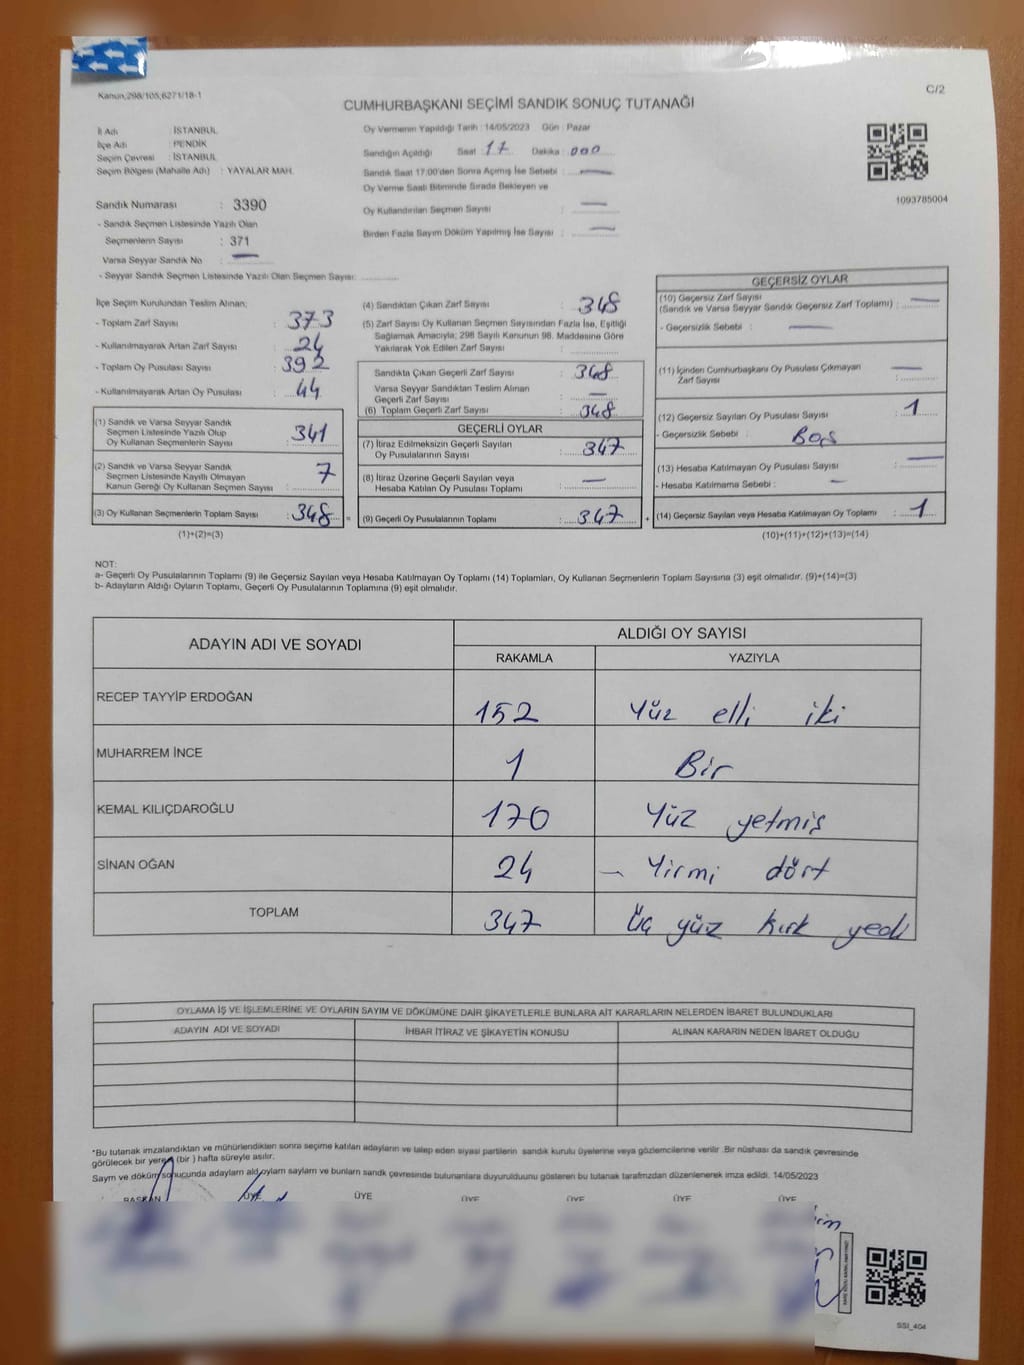 Kanun,298/105,6271/18-1
C/2
CUMHURBAŞKANI SEÇİMİ SANDIK SONUÇ TUTANAĞI
İl Adı : İSTANBUL
İlçe Adı : PENDİK
Seçim Çevresi : İSTANBUL
Seçim Bölgesi (Mahalle Adı) : YAYALAR MAH.
Sandık Numarası : 3390
- Sandık Seçmen Listesinde Yazılı Olan
Seçmenlerin Sayısı : 371
Varsa Seyyar Sandık No : —
- Seyyar Sandık Seçmen Listesinde Yazılı Olan Seçmen Sayısı: ............
Oy Vermenin Yapıldığı Tarih : 14/05/2023 Gün : Pazar
Sandığın Açıldığı Saat : 17 Dakika : 000
Sandık Saat 17:00'den Sonra Açımış İse Sebebi : —
Oy Verme Saati Bitiminde Sırada Bekleyen ve
Oy Kullandırılan Seçmen Sayısı : —
Birden Fazla Sayım Döküm Yapılmış İse Sayısı : —
1093785004
İlçe Seçim Kurulundan Teslim Alınan;
- Toplam Zarf Sayısı : 373
- Kullanılmayarak Artan Zarf Sayısı : 24
- Toplam Oy Pusulası Sayısı : 392
- Kullanılmayarak Artan Oy Pusulası : 44
(1) Sandık ve Varsa Seyyar Sandık
Seçmen Listesinde Yazılı Olup
Oy Kullanan Seçmenlerin Sayısı : 341
(2) Sandık ve Varsa Seyyar Sandık
Seçmen Listesinde Kayıtlı Olmayan
Kanun Gereği Oy Kullanan Seçmen Sayısı : 7
(3) Oy Kullanan Seçmenlerin Toplam Sayısı : 348 =
(1)+(2)=(3)
(4) Sandıktan Çıkan Zarf Sayısı : 348
(5) Zarf Sayısı Oy Kullanan Seçmen Sayısından Fazla İse, Eşitliği
Sağlamak Amacıyla; 298 Sayılı Kanunun 98. Maddesine Göre
Yakılarak Yok Edilen Zarf Sayısı :
Sandıkta Çıkan Geçerli Zarf Sayısı : 348
Varsa Seyyar Sandıktan Teslim Alınan
Geçerli Zarf Sayısı : —
(6) Toplam Geçerli Zarf Sayısı : 348
GEÇERLİ OYLAR
(7) İtiraz Edilmeksizin Geçerli Sayılan
Oy Pusulalarının Sayısı : 347
(8) İtiraz Üzerine Geçerli Sayılan veya
Hesaba Katılan Oy Pusulası Toplamı : —
(9) Geçerli Oy Pusulalarının Toplamı : 347 +
GEÇERSİZ OYLAR
(10) Geçersiz Zarf Sayısı
(Sandık ve Varsa Seyyar Sandık Geçersiz Zarf Toplamı) : —
- Geçersizlik Sebebi : —
(11) İçinden Cumhurbaşkanı Oy Pusulası Çıkmayan
Zarf Sayısı : —
(12) Geçersiz Sayılan Oy Pusulası Sayısı : 1
- Geçersizlik Sebebi : Boş
(13) Hesaba Katılmayan Oy Pusulası Sayısı : —
- Hesaba Katılmama Sebebi : —
(14) Geçersiz Sayılan veya Hesaba Katılmayan Oy Toplamı : 1
(10)+(11)+(12)+(13)=(14)
NOT:
a- Geçerli Oy Pusulalarının Toplamı (9) ile Geçersiz Sayılan veya Hesaba Katılmayan Oy Toplamı (14) Toplamları, Oy Kullanan Seçmenlerin Toplam Sayısına (3) eşit olmalıdır. (9)+(14)=(3)
b- Adayların Aldığı Oyların Toplamı, Geçerli Oy Pusulalarının Toplamına (9) eşit olmalıdır.
ADAYIN ADI VE SOYADI
ALDIĞI OY SAYISI
RAKAMLA YAZIYLA
RECEP TAYYİP ERDOĞAN 152 Yüz elli iki
MUHARREM İNCE 1 Bir
KEMAL KILIÇDAROĞLU 170 Yüz yetmiş
SİNAN OĞAN 24 Yirmi dört
TOPLAM 347 Üç yüz kırk yedi
OYLAMA İŞ VE İŞLEMLERİNE VE OYLARIN SAYIM VE DÖKÜMÜNE DAİR ŞİKAYETLERLE BUNLARA AİT KARARLARIN NELERDEN İBARET BULUNDUKLARI
ADAYIN ADI VE SOYADI İHBAR İTİRAZ VE ŞİKAYETİN KONUSU ALINAN KARARIN NEDEN İBARET OLDUĞU
*Bu tutanak imzalandıktan ve mühürlendikten sonra seçime katılan adayların ve talep eden siyasi partilerin sandık kurulu üyelerine veya gözlemcilerine verilir .Bir nüshası da sandık çevresinde
görülecek bir yere (bir ) hafta süreyle asılır.
Sayım ve döküm sonucunda adayların ald oyların sayların ve bunların sandk çevresinde bulunanlara duyurulduunu gösteren bu tutanak tarafmzdan düzenlenerek imza edildi. 14/05/2023
BAŞKAN ÜYE ÜYE ÜYE ÜYE ÜYE ÜYE
SSI_404